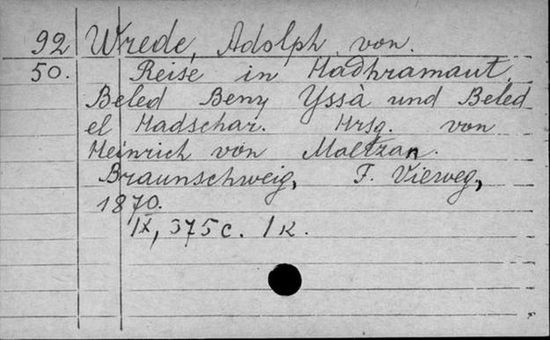 92 Wrede, Adolph von.
50. Reise in Hadhramaut,
Beled Beny Yssà und Beled
el Hadschar. Hrsg. von
Heinrich von Maltzan.
Braunschweig, F. Vieweg,
1870.
IX, 375 c. 1 к.